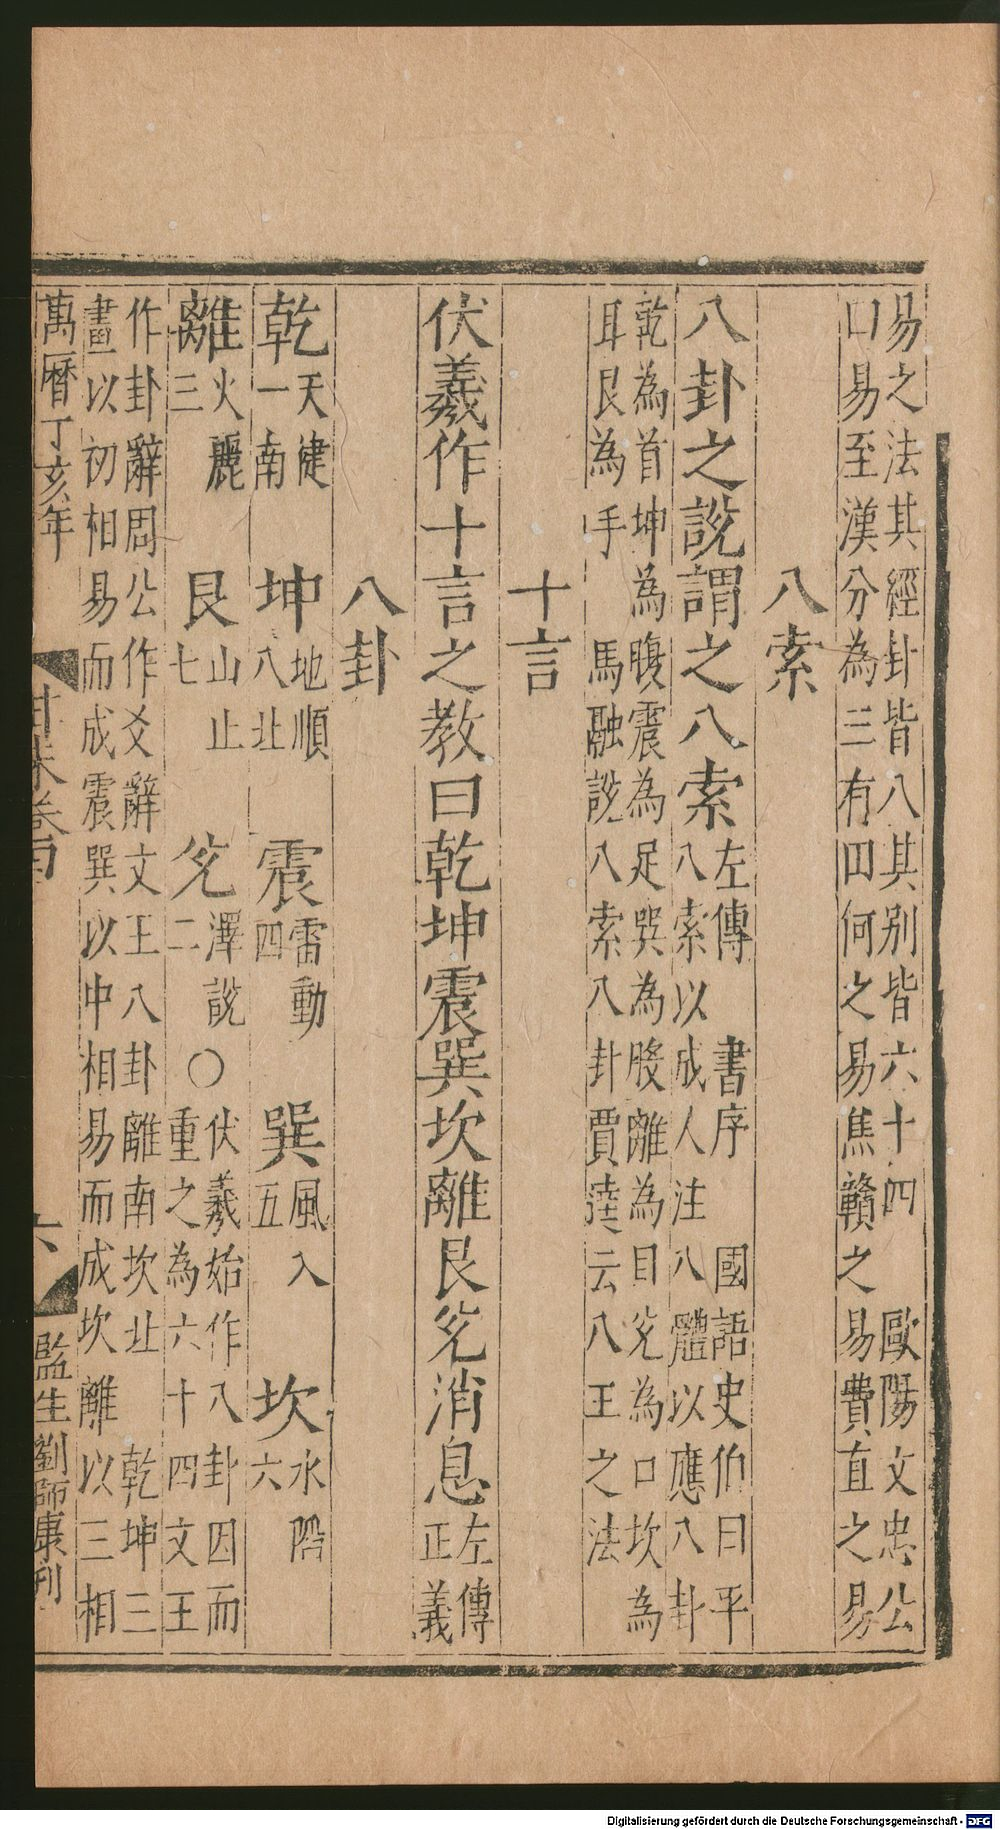 易之法其經卦皆八其別皆六十四　歐陽文忠公
口易至漢分為三有田何之易焦贛之易費直之易
八索
八卦之說謂之八索
左傳　書序　國語史伯曰平
八索以成人注八體以應八卦
乾為首坤為腹震為足巽為股離為目兊為口坎為
耳艮為手　馬融說八索八卦賈逵云八王之法
十言
伏羲作十言之教曰乾坤震巽坎離艮兊消息
左傳
正義
八卦
乾 天健 一南　坤 地順 八北　震 雷動 四　巽 風入 五　坎 水陷 六
離 火麗 三　艮 山止 七　兊 澤說 二 〇 伏羲始作八卦因而
重之為六十四文王
作卦辭周公作爻辭文王八卦離南坎北　乾坤三
畫以初相易而成震巽以中相易而成坎離以三相
萬曆丁亥年
六
監生劉師康刊
Digitalisierung gefördert durch die Deutsche Forschungsgemeinschaft - DFG